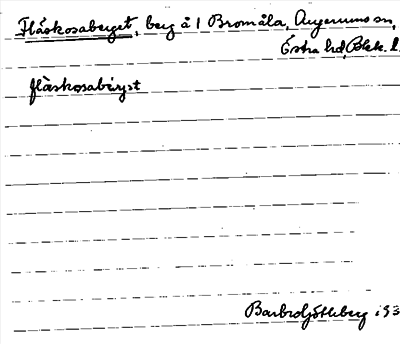 Fläskosaberget, berg å 1 Bromåla, Augerums sn,
Östra hd, Blek. l.
flàskosabǽryet
Barbro Söderberg i 93